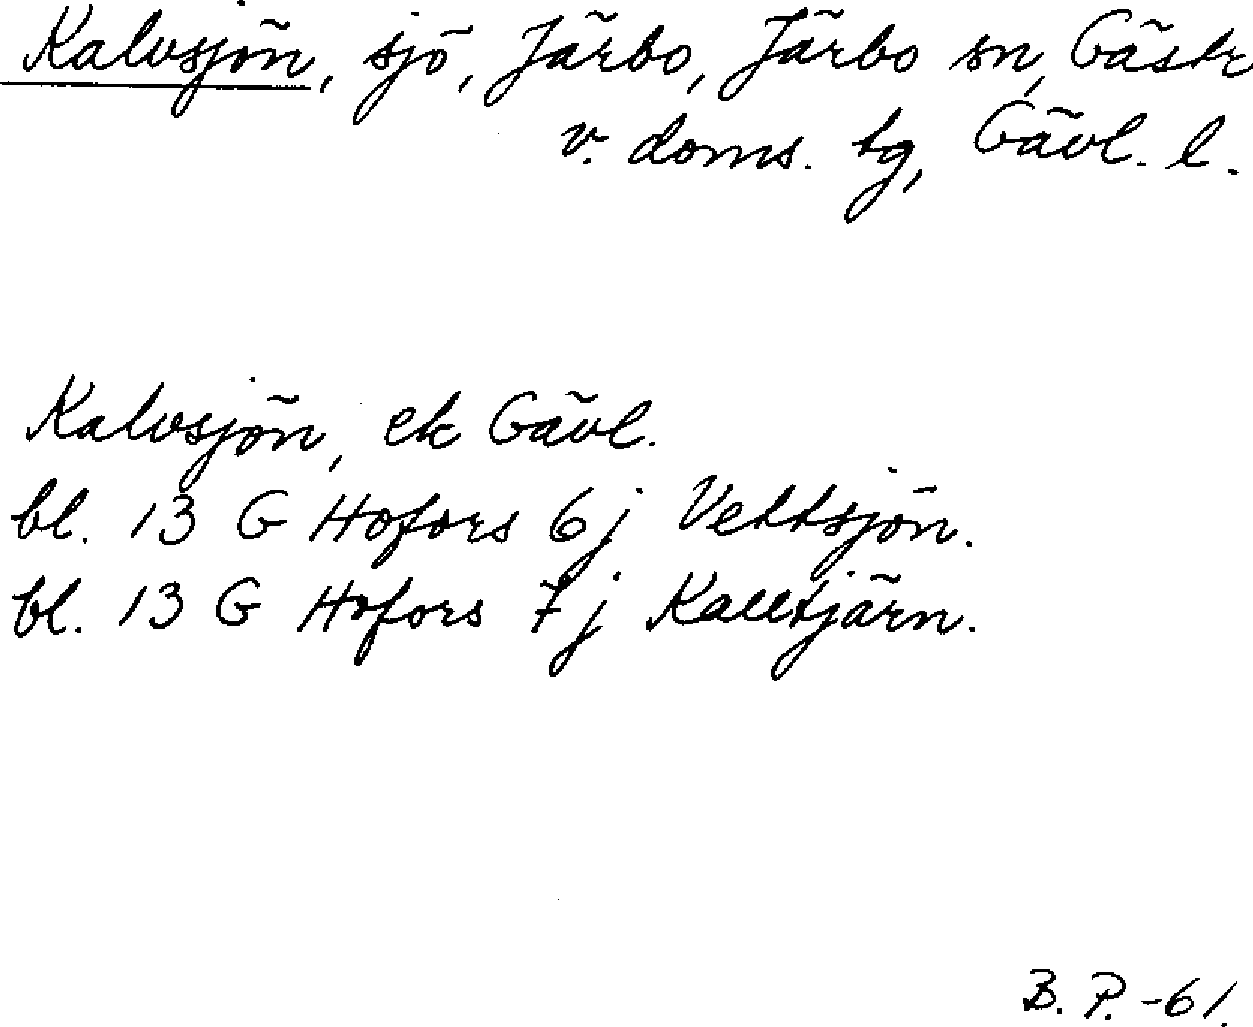 Kalvsjön, sjö, Järbo, Järbo sn, Gästr
v. doms. tg, Gävl. l.
Kalvsjön, ek Gävl.
bl. 13 G Hofors 6j Vettsjön.
bl. 13 G Hofors 7j Kalltjärn.
B. P. -61.